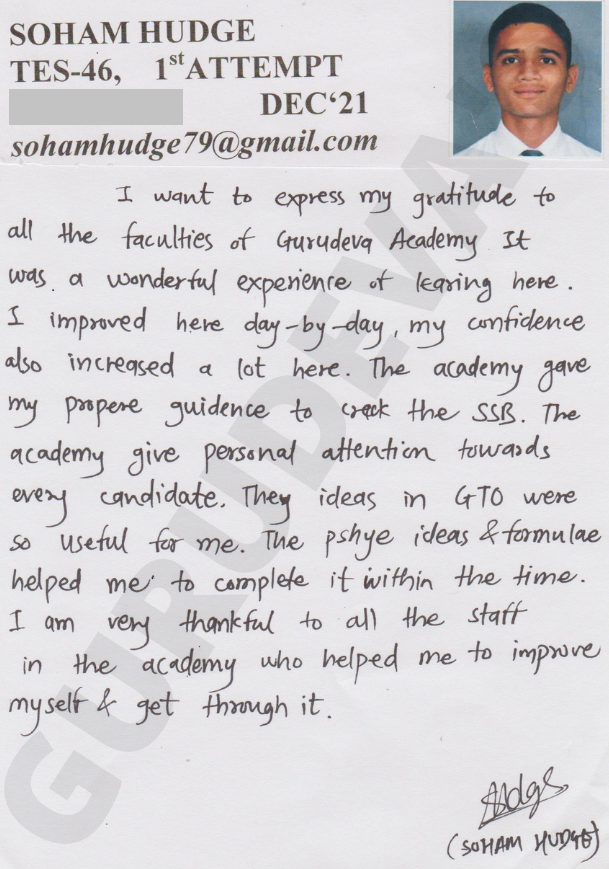 SOHAM HUDGE
TES-46, 1st ATTEMPT
DEC'21
sohamhudge79@gmail.com
I want to express my gratitude to
all the faculties of Gurudeva Academy It
was a wonderful experience of learing here.
I improved here day-by-day, my confidence
also increased a lot here. The academy gave
my propere guidence to crack the SSB. The
academy give personal attention towards
every candidate. They ideas in GTO were
so useful for me. The pshye ideas & formulae
helped me to complete it within the time.
I am very thankful to all the staff
in the academy who helped me to improve
myself & get through it.
(SOHAM HUDGE)
GURUDEVA